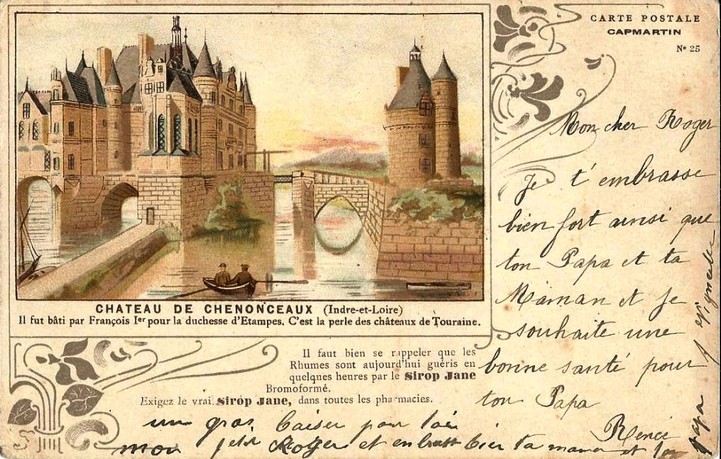 CARTE POSTALE
CAPMARTIN
Nº 25
CHATEAU DE CHENONCEAUX (Indre-et-Loire)
Il fut bâti par François Ier pour la duchesse d'Etampes. C'est la perle des châteaux de Touraine.
Il faut bien se rappeler que les
Rhumes sont aujourd'hui guéris en
quelques heures par le Sirop Jane
Bromoformé.
Exigez le vrai Sirop Jane, dans toutes les pharmacies.
Mon cher Roger
Je t'embrasse
bien fort ainsi que
ton Papa et ta
Maman et je
souhaite une
bonne santé pour
ton Papa
Renée
un gros baiser pour toi
mon petit Roger et embrasse bien ta maman et ton
papa